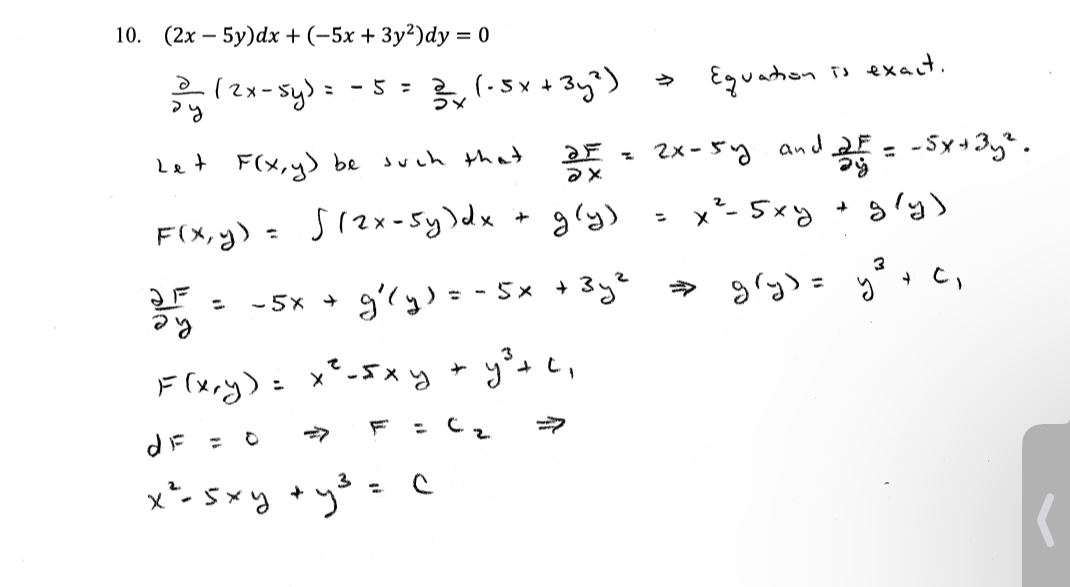 10. (2x – 5y)dx + (−5x + 3y²)dy = 0
∂/∂y (2x-5y) = -5 = ∂/∂x (-5x + 3y²) ⇒ Equation is exact.
Let F(x,y) be such that ∂F/∂x = 2x-5y and ∂F/∂y = -5x+3y².
F(x,y) = ∫(2x-5y)dx + g(y) = x²-5xy + g(y)
∂F/∂y = -5x + g'(y) = -5x + 3y² ⇒ g(y) = y³ + C₁
F(x,y) = x²-5xy + y³ + C₁
dF = 0 ⇒ F = C₂ ⇒
x²-5xy + y³ = C